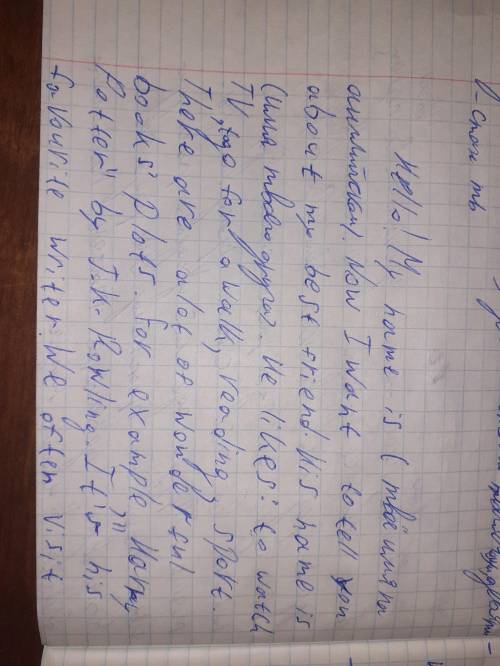 Hello! My name is (твоё имя на
английском). Now I want to tell you
about my best friend. His name is
(имя твоего друга). He likes: to watch
TV, to go for a walk, reading, sport.
There are a lot of wonderful
books' plots. For example "Harry
Potter" by J.K. Rowling. It's his
favourite writer. We often visit